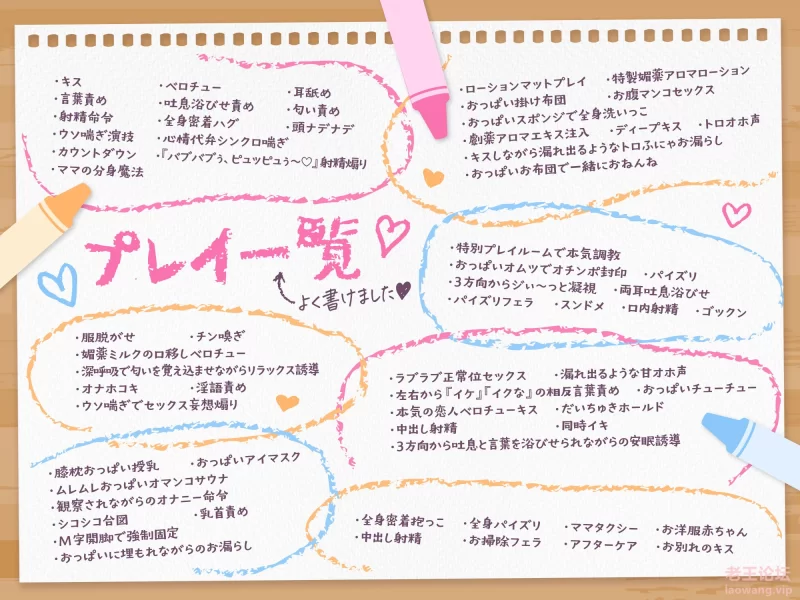 ・キス
・言葉責め
・射精命令
・ウソ喘ぎ演技
・カウントダウン
・ママの分身魔法
・ベロチュー
・吐息浴びせ責め
・全身密着ハグ
・心情代弁シンクロ喘ぎ
・『バブバブぅ、ピュッピュぅ〜♡』射精煽り
・耳舐め
・匂い責め
・頭ナデナデ
・ローションマットプレイ
・特製媚薬アロマローション
・おっぱい掛け布団
・お腹マンコセックス
・おっぱいスポンジで全身洗いっこ
・劇薬アロマエキス注入
・ディープキス
・トロオホ声
・キスしながら漏れ出るようなトロふにゃお漏らし
・おっぱいお布団で一緒におねんね
プレイ一覧
よく書けました♥
・特別プレイルームで本気調教
・おっぱいオムツでオチンポ封印
・パイズリ
・3方向からジぃ〜っと凝視
・両耳吐息浴びせ
・パイズリフェラ
・スンドメ
・口内射精
・ゴックン
・服脱がせ
・チン嗅ぎ
・媚薬ミルクの口移しベロチュー
・深呼吸で匂いを覚え込ませながらリラックス誘導
・オナホコキ
・淫語責め
・ウソ喘ぎでセックス妄想煽り
・ラブラブ正常位セックス
・漏れ出るような甘オホ声
・左右から『イケ』『イクな』の相反言葉責め
・おっぱいチューチュー
・本気の恋人ベロチューキス
・だいちゅきホールド
・中出し射精
・同時イキ
・3方向から吐息と言葉を浴びせられながらの安眠誘導
・膝枕おっぱい授乳
・おっぱいアイマスク
・ムレムレおっぱいオマンコサウナ
・観察されながらのオナニー命令
・シコシコ台図
・乳首責め
・M字開脚で強制固定
・おっぱいに埋もれながらのお漏らし
・全身密着抱っこ
・全身パイズリ
・ママタクシー
・お洋服赤ちゃん
・中出し射精
・お掃除フェラ
・アフターケア
・お別れのキス
老王论坛
laowang.vip